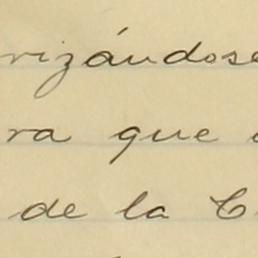 rizándose
ra que
de la C